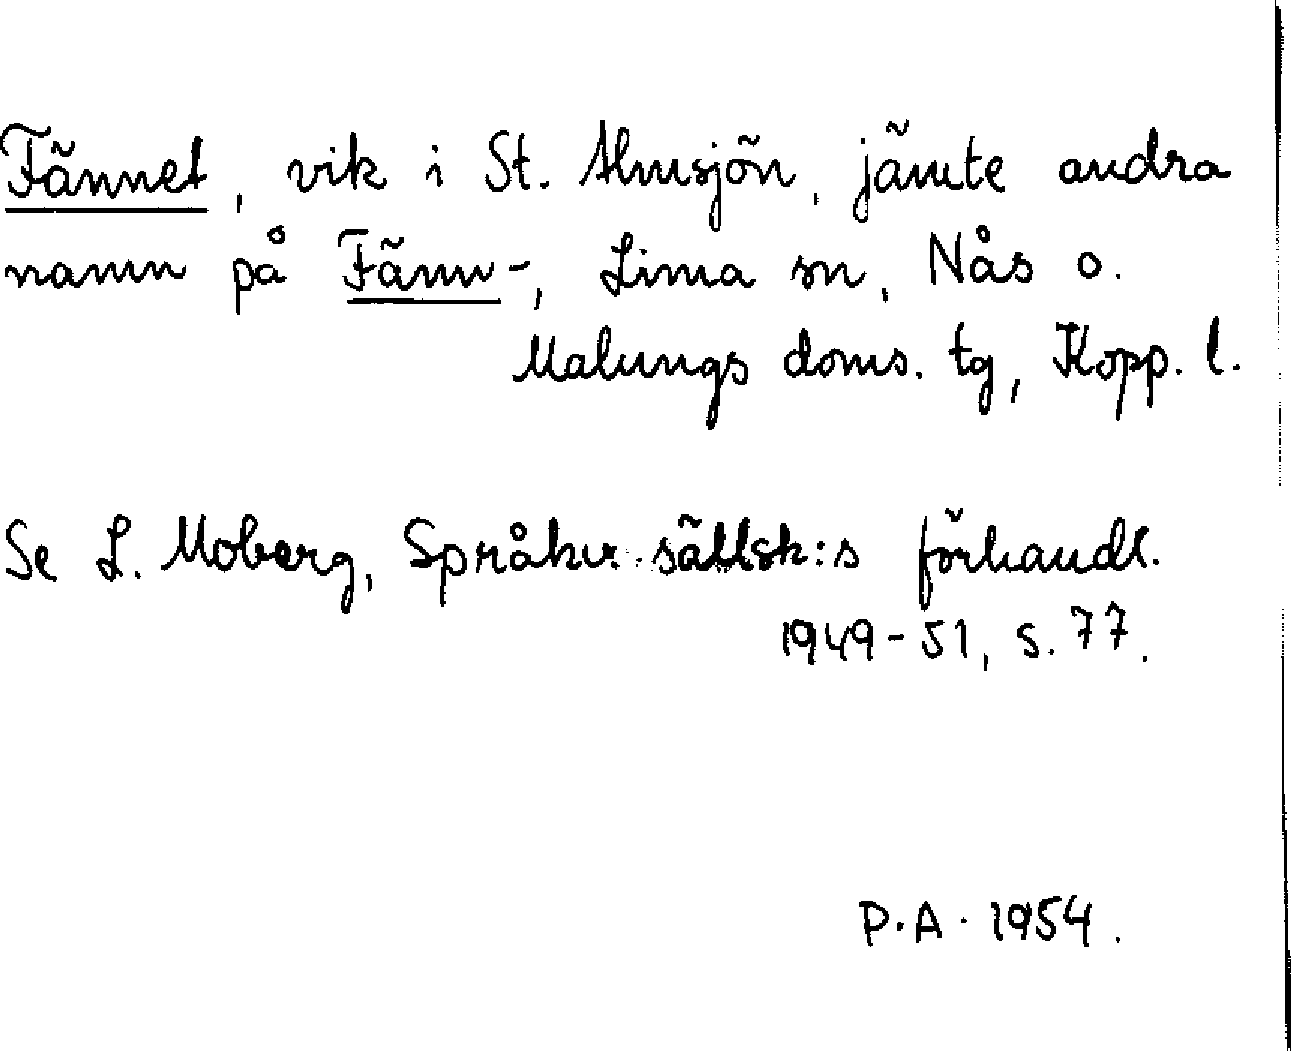 Fännet, vik i St. Almsjön, jämte andra
namn på Fänn-, Lima sn, Nås o.
Malungs doms. tg, Kopp. l.
Se L. Moberg, Språkv. sällsk:s förhandl.
1949-51, s. 77.
P.A. 1954.